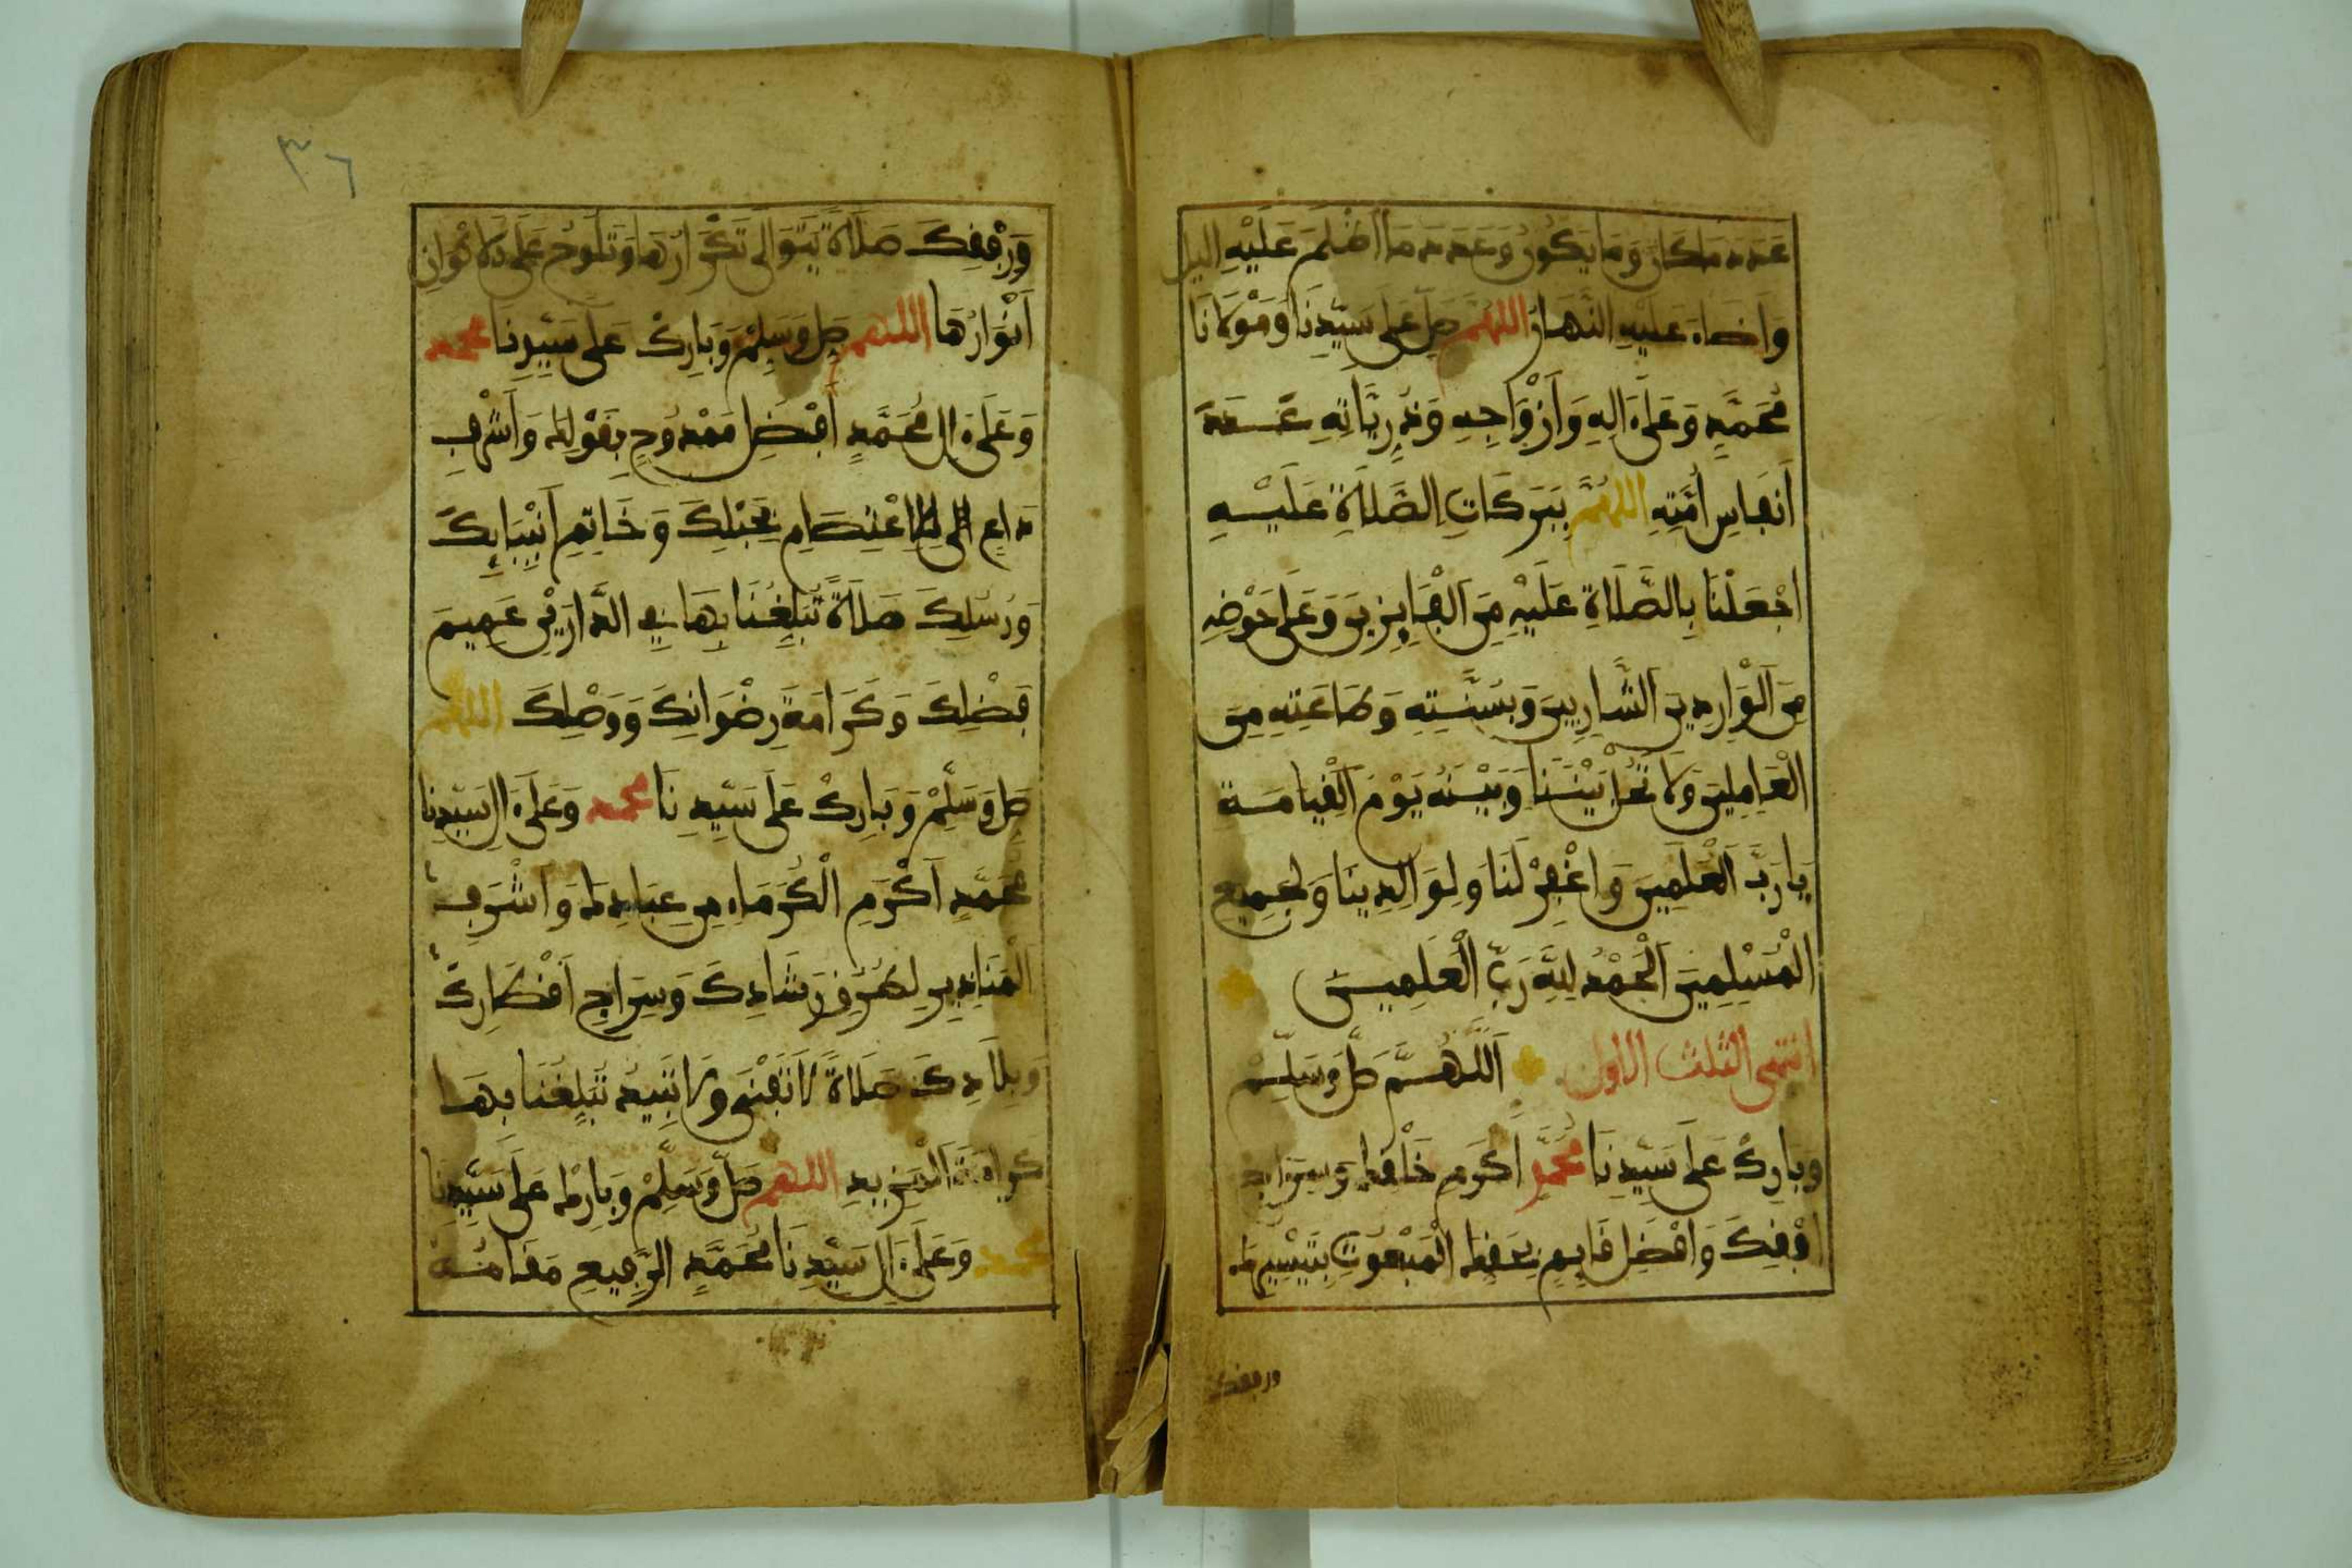 عَدَدَ مَا كَانَ وَمَا يَكُونُ وَعَدَدَ مَا أَظْلَمَ عَلَيْهِ اليل
وَأَضَاءَ عَلَيْهِ النَّهَارُ اللهُمَّ صَلِّ عَلَى سَيِّدِنَا وَمَوْلَانَا
مُحَمَّدٍ وَعَلَى ءَالِهِ وَأَزْوَاجِهِ وَذُرِّيَّاتِهِ عَدَدَ
أَنفَاسِ أُمَّتِهِ اللهُمَّ بِبَرَكَاتِ الصَّلَاةِ عَلَيْهِ
اجْعَلْنَا بِالصَّلَاةِ عَلَيْهِ مِنَ الْفَايِزِينَ وَعَلَى حَوْضِهِ
مِنَ الْوَارِدِينَ الشَّارِبِينَ وَبِسُنَّتِهِ وَطَاعَتِهِ مِنَ
الْعَامِلِينَ وَلَا تَحُلْ بَيْنَنَا وَبَيْنَهُ يَوْمَ الْقِيَامَةِ
يَا رَبَّ الْعَلَمِينَ وَاغْفِرْ لَنَا وَلِوَالِدِينَا وَلِجَمِيعِ
الْمُسْلِمِينَ الْحَمْدُ لِلَّهِ رَبِّ الْعَلَمِينَ
انتهى الثلث الاول اَللَّهُمَّ صَلِّ وَسَلِّمْ
وَبَارِكْ عَلَى سَيِّدِنَا مُحَمَّدٍ أَكْرَمِ خَلْقِكَ وَسِرَاجِ
أُفْقِكَ وَأَفْضَلِ قَايِمٍ بِحَقِّكَ الْمَبْعُوثِ بِتَيْسِيرِكَ
ورفقك
٣٦
وَرِفْقِكَ صَلَاةً يَتَوَالَى تَكْرَارُهَا وَتَلُوحُ عَلَى الاكْوَانِ
أَنْوَارُهَا اللهم صَلِّ وَسَلِّمْ وَبَارِكْ عَلَى سَيِّدِنَا محمد
وَعَلَى ءَالِ مُحَمَّدٍ أَفْضَلِ مَمْدُوحٍ بِقَوْلِكَ وَأَشْرَفِ
دَاعٍ اِلَى لِلاِعْتِصَامِ بِحَبْلِكَ وَخَاتِمِ أَنْبِيَايِكَ
وَرُسُلِكَ صَلَاةً تُبَلِّغُنَا بِهَا فِي الدَّارَيْنِ عَمِيمَ
فَضْلِكَ وَكَرَامَةَ رِضْوَانِكَ وَوَصْلِكَ اللهم
صَلِّ وَسَلِّمْ وَبَارِكْ عَلَى سَيِّدِنَا محمد وَعَلَى ءَالِ سَيِّدِنَا
مُحَمَّدٍ أَكْرَمِ الْكُرَمَاءِ مِنْ عِبَادِكَ وَأَشْرَفِ
الْمُنَادِينَ لِطُرُقِ رَشَادِكَ وَسِرَاجِ أَقْطَارِكَ
وَبِلَادِكَ صَلَاةً لَا تَفْنَى وَلَا تَبِيدُ تُبَلِّغُنَا بِهَا
كَرَامَةَ الْمَزِيدِ اللهم صَلِّ وَسَلِّمْ وَبَارِكْ عَلَى سَيِّدِنَا
محمد وَعَلَى ءَالِ سَيِّدِنَا مُحَمَّدٍ الرَّفِيعِ مَقَامُهُ